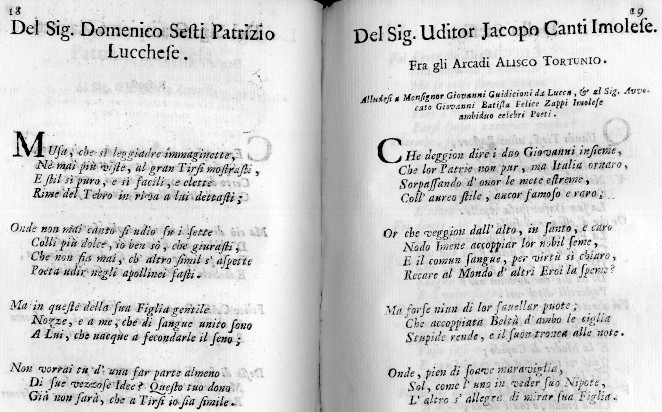 18
Del Sig. Domenico Sesti Patrizio
Lucchese.
MUsa, che sì leggiadre immaginette,
Nè mai più viste, al gran Tirsi mostrasti,
E stil sì puro, e sì facili, e elette
Rime del Tebro in riva a lui dettasti;
Onde non mai canto sì udìo su i sette
Colli più dolce, io ben sò, che giurasti,
Che non sia mai, ch' altro simil s' aspette
Poeta udir negli apollinei fasti.
Ma in queste della sua Figlia gentile
Nozze, e a me, che di sangue unito sono
A Lui, che nacque a fecondarle il seno;
Non vorrai tu d' una far parte almeno
Di sue vezzose Idee? Questo tuo dono
Già non farà, che a Tirsi io sia simile.
19
Del Sig. Uditor Jacopo Canti Imolese.
Fra gli Arcadi ALISCO TORTUNIO.
Alludesi a Monsignor Giovanni Guidiccioni da Lucca, & al Sig. Avvo-
cato Giovanni Batista Felice Zappi Imolese
ambiduo celebri Poeti.
CHe deggion dire i duo Giovanni insieme,
Che lor Patrie non pur, ma Italia ornaro,
Sorpassando d' onor le mete estreme,
Coll' aureo stile, ancor famoso e raro;
Or che veggion dall' alto, in santo, e caro
Nodo Imene accoppiar lor nobil seme,
E il comun sangue, per virtù sì chiaro,
Recare al Mondo d' altri Eroi la speme?
Ma forse niun di lor favellar puote;
Che accoppiata Beltà d' ambo le ciglia
Stupide rende, e il suon tronca alle note.
Onde, pien di soave maraviglia,
Sol, come l' uno in veder suo Nipote,
L' altro s' allegra di mirar sua Figlia.